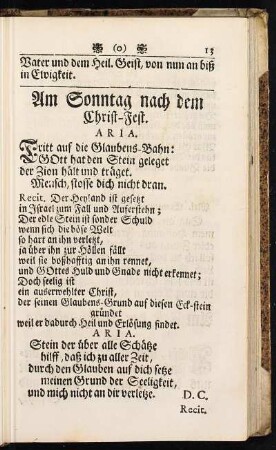 (o) 13
Vater und dem Heil. Geist, von nun an biß
in Ewigkeit.
Am Sonntag nach dem
Christ-Fest.
ARIA.
Tritt auf die Glaubens-Bahn:
GOtt hat den Stein geleget
der Zion hält und träget.
Mensch, stosse dich nicht dran.
Recit. Der Heyland ist gesetzt
in Israel zum Fall und Auferstehn;
Der edle Stein ist sonder Schuld
wenn sich die böse Welt
so hart an ihn verletzt,
ja über ihn zur Höllen fällt
weil sie boßhafftig an ihn rennet,
und GOttes Huld und Gnade nicht erkennet;
Doch seelig ist
ein auserwehlter Christ,
der seinen Glaubens-Grund auf diesen Eck-stein
gründet
weil er dadurch Heil und Erlösung findet.
ARIA.
Stein der über alle Schätze
hilff, daß ich zu aller Zeit,
durch den Glauben auf dich setze
meinen Grund der Seeligkeit,
und mich nicht an dir verletze. D. C.
Recit.